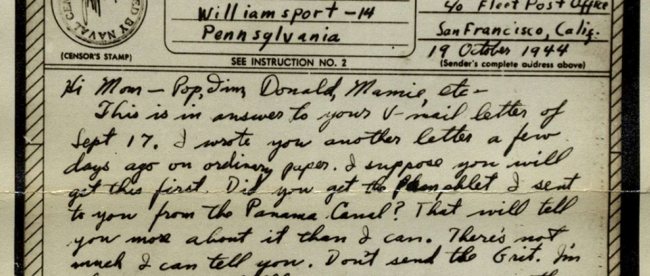 ED BY NAVAL CEN
(CENSOR'S STAMP)
Williamsport - 14
Pennsylvania
SEE INSTRUCTION NO. 2
c/o Fleet Post Office
San Francisco, Calif.
19 October 1944
(Sender's complete address above)
Hi Mom - Pop, Jim, Donald, Mamie, etc -
This is in answer to your V-mail letter of
Sept 17. I wrote you another letter a few
days ago on ordinary paper. I suppose you will
get this first. Did you get the Pamphlet I sent
to you from the Panama Canal? That will tell
you more about it than I can. There's not
much I can tell you. Don't send the Grit. I'm